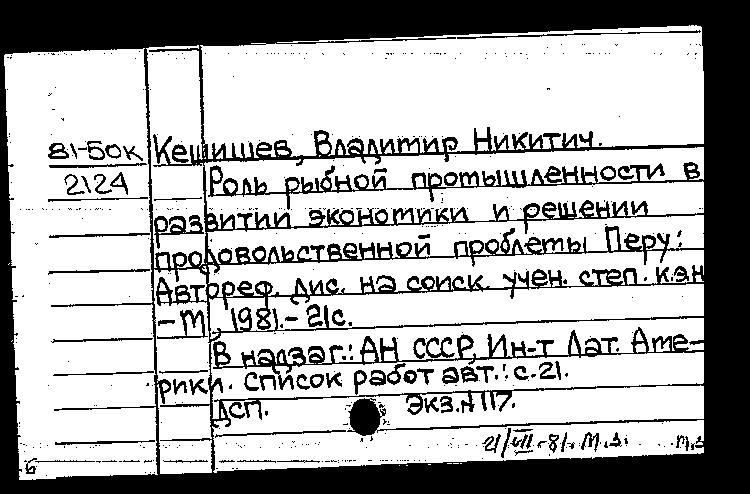 81-БОК Кешишев, Владимир Никитич.
2124 Роль рыбной промышленности в
развитии экономики и решении
продовольственной проблемы Перу:
Автореф. дис. на соиск. учен. степ. к.э.н
-М, 1981.- 21с.
В надзаг.: АН СССР, Ин-т Лат. Аме-
рики. Список работ авт.: с.21.
ДСП. Экз.№117.
21/VII-81. М.З. М.З
6